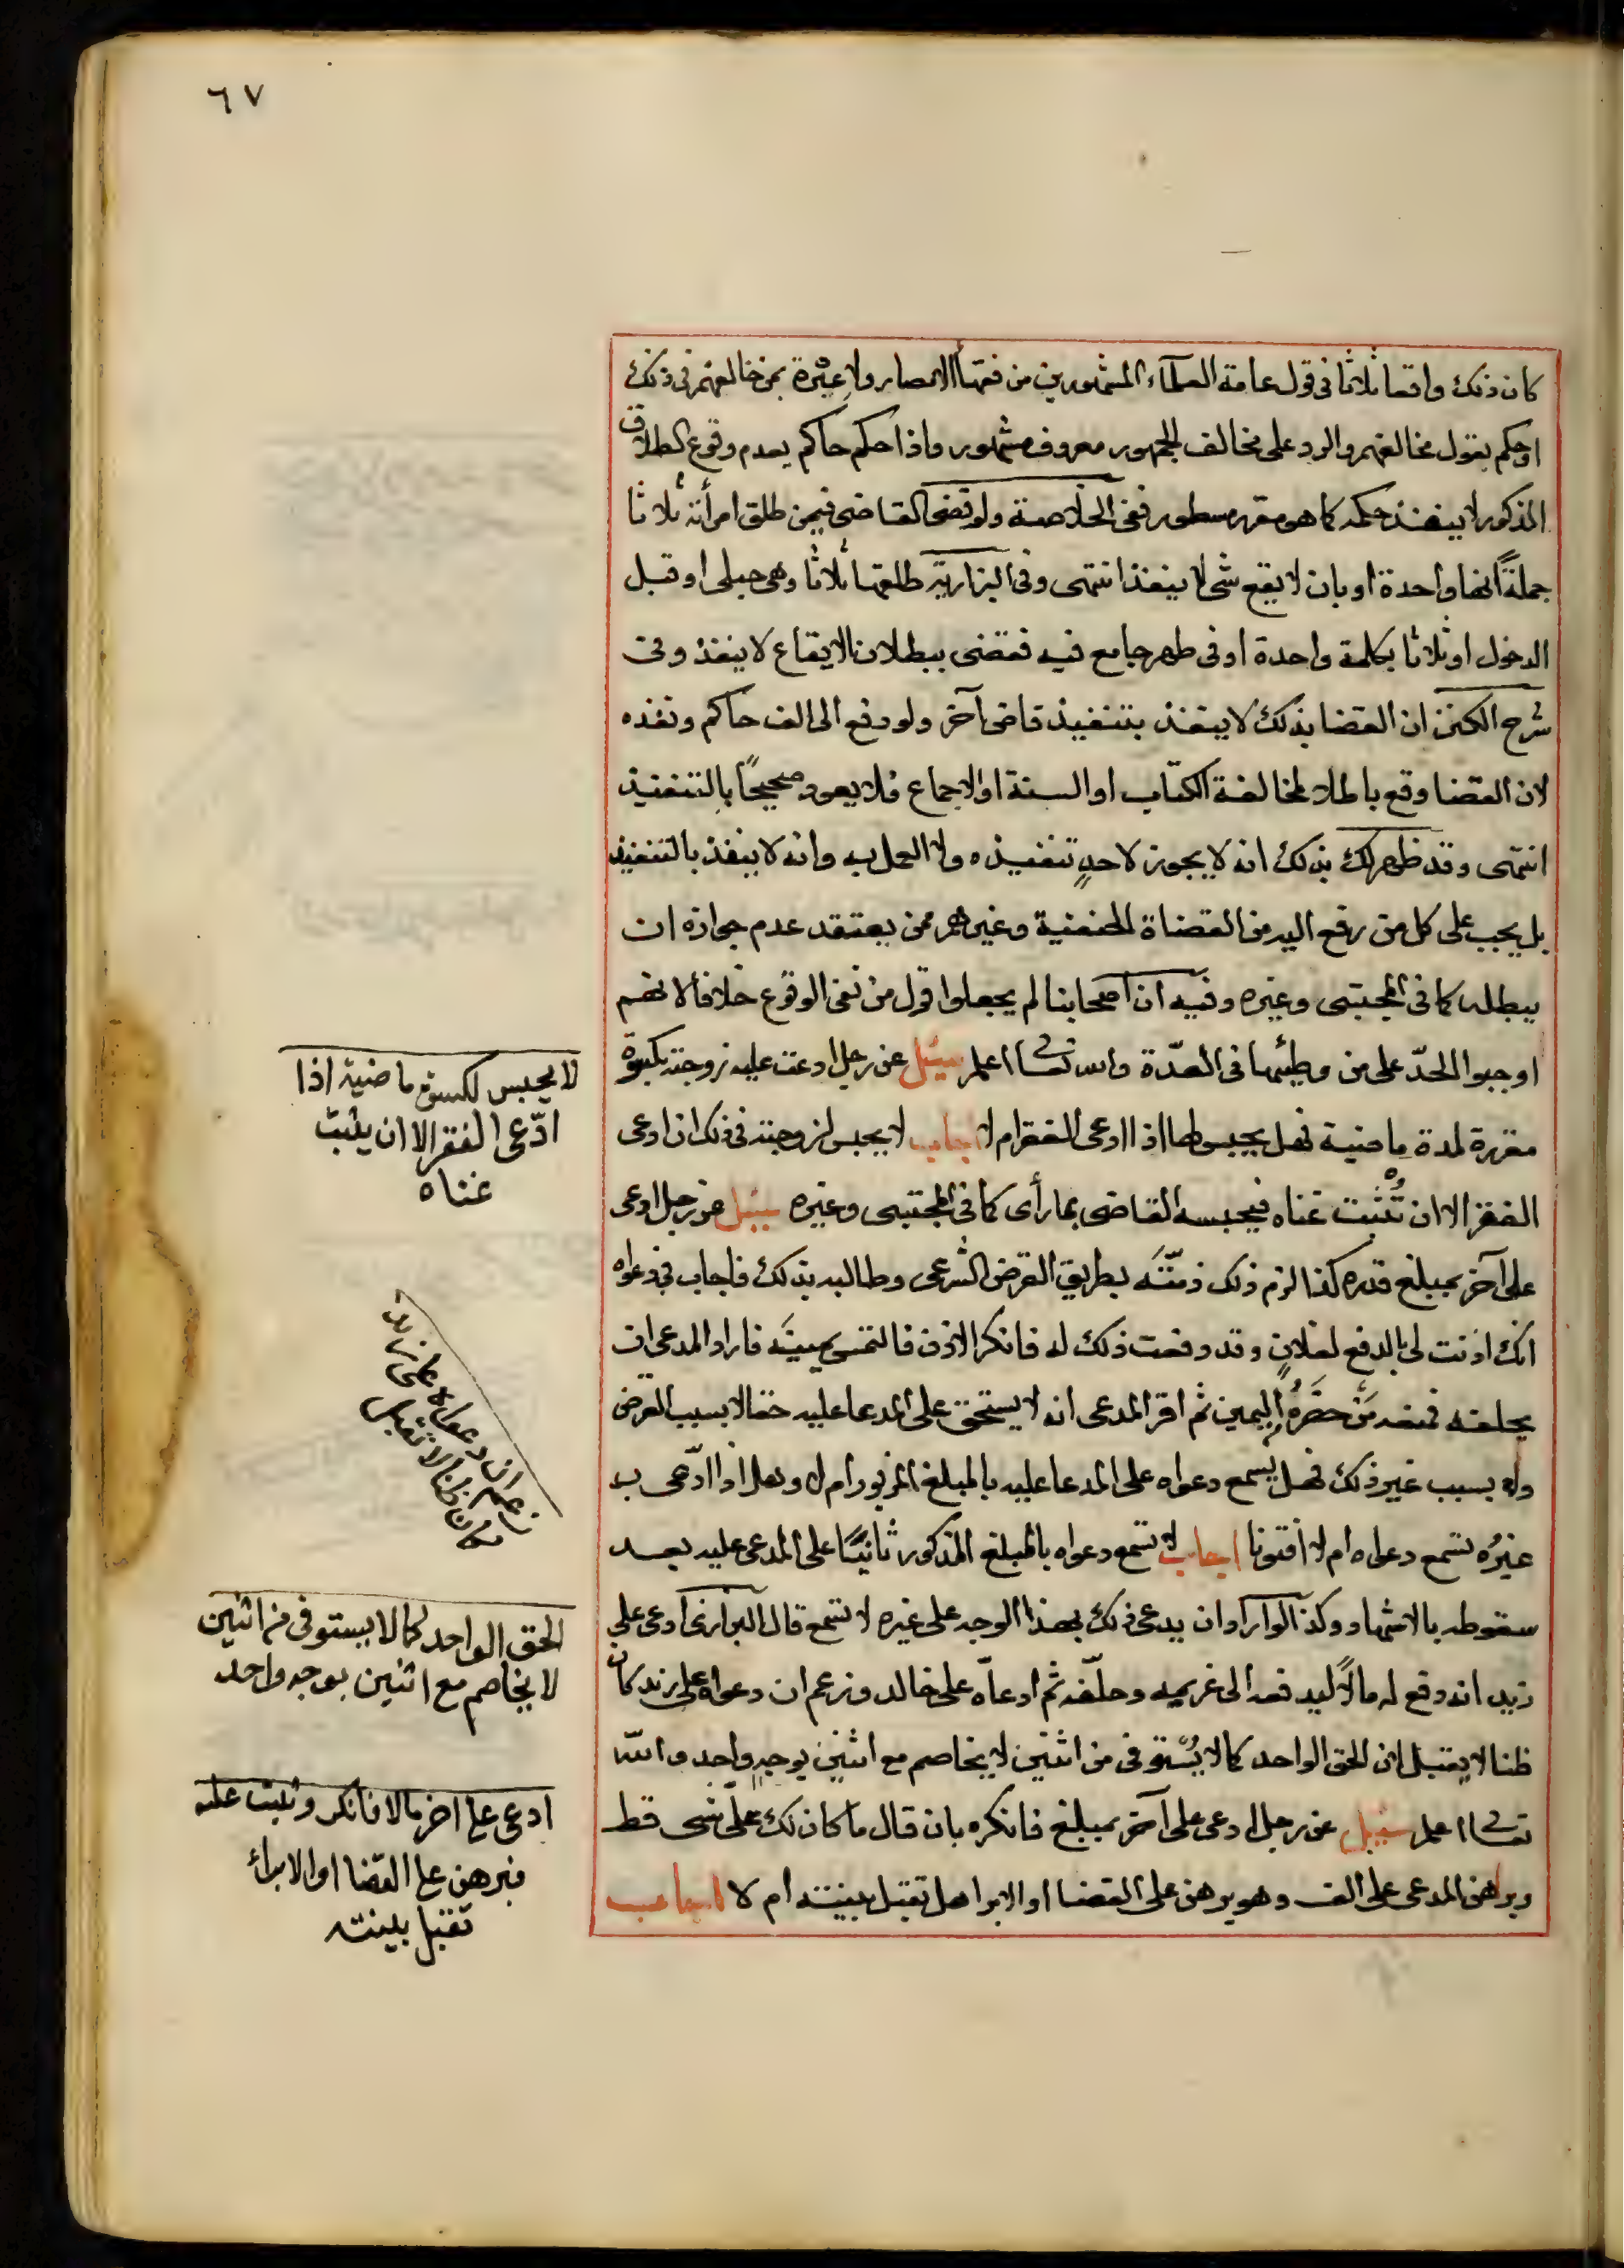 ٦٧
كان ذلك واقعا ثلاثا فى قول عامة العلماء المشهورين من فقهاء الامصار ولا عبْرة بمن خالفهم فى ذلك
او حكم بقول مخالفهم والرد على مخالف الجمهور معروف مشهور واذا حكم حاكم بعدم وقوع الطلاق
المذكور لا ينفذ حكمه كما هو مقرر مسطور ففى الخلاصة ولو قضى القاضى فيمن طلق امرأته ثلاثا
جملةً انها واحدة او بان لا يقع شى لا ينفذ انتهى وفى البزازية طلقها ثلاثا وهى حبلى او قبل
الدخول او ثلاثا بكلمة واحدة او فى طهر جامع فيه فقضى ببطلان الايقاع لا ينفذ وفى
شرح الكنز ان القضا بذلك لا ينفذ بتنفيذ قاض آخر ولو رفع الى الف حاكم ونفذه
لان القضا وقع باطلا لمخالفة الكتاب او السنة او الاجماع فلا يعود صحيحًا بالتنفيذ
انتهى وقد ظهر لك بذلك انه لا يجوز لاحدٍ تنفيذه ولا العمل به وانه لا ينفذ بالتنفيذ
بل يجب على كل من رفع اليه من القضاة الحنفية وغيرهم ممن يعتقد عدم جوازه ان
يبطله كما فى المجتبى وغيره وفيه ان اصحابنا لم يجعلوا قول من نفى الوقوع خلافا لانهم
اوجبوا الحدّ على من وطئها فى العدّة والله تعالى اعلم سئل عن رجل ادعت عليه زوجته بكسوة
مقررة لمدة ماضية فهل يحبس لها اذا ادعى الفقر ام لا اجاب لا يحبس لزوجته فى ذلك ان ادعى
الفقر الا ان تُثبت غناه فيحبسه القاضى بما رأى كما فى المجتبى وغيره سئل عن رجل ادعى
على آخر بمبلغ قدره كذا لزم ذلك ذمّته بطريق القرض الشرعى وطالبه بذلك فاجاب فى دعواه
انك اذنت لى بالدفع لفلانٍ وقد دفعت ذلك له فانكر الاذن فالتمس يمينَه فاراد المدعى ان
يحلفه فمنعه مَنْ حضَرَهُ اليمين ثم اقر المدعى انه لا يستحق على المدعا عليه حقا لا بسبب القرض
ولا بسبب غير ذلك فهل يسمع دعواه على المدعا عليه بالمبلغ المزبور ام لا وهل اذا ادّعى به
غيرُه تسمع دعواه ام لا افتونا اجاب لا تسمع دعواه بالمبلغ المذكور ثانيًا على المدعى عليه بعد
سقوطه بالاشهاد وكذا لو اراد ان يدعى ذلك بهذا الوجه على غيره لا تسمع قال البزازى ادعى على
زيد انه دفع له مالًا ليدفعه الى غريمه وحلّفه ثم ادعاه على خالد وزعم ان دعواه على زيد كان
ظنا لا يقبل لان الحق الواحد كما لا يُسْتوفى من اثنين لا يخاصم مع اثنين بوجهٍ واحد والله
تعالى اعلم سئل عن رجل ادعى على آخر بمبلغ فانكره بان قال ما كان لك علىّ شى قط
وبرهن المدعى على الف وهو يرهن على القضا او الابرا هل تقبل بينته ام لا اجاب
لا يحبس لكسوة ماضية اذا
ادّعى الفقر الا ان يثبت
غناه
زعم ان دعواه على زيد
كان ظنا لا تقبل
الحق الواحد كما لا يستوفى من اثنين
لا يخاصم مع اثنين بوجه واحد
ادعى على اخر مالا فانكر وثبت عليه
فبرهن على القضا او الابراء
تقبل بينته